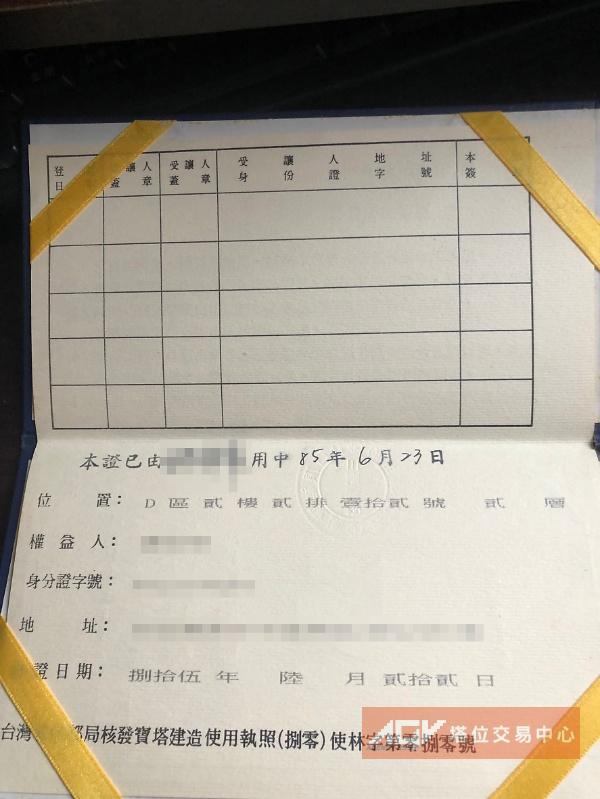 登
日
讓人
蓋章
受讓人
蓋章
受讓人地址
身份證字號
本
簽
本證已由 用中85年6月23日
位置：D區貳樓貳排壹拾貳號 貳層
權益人：
身分證字號：
地址：
證日期：捌拾伍年 陸 月貳拾貳日
台灣 局核發寶塔建造使用執照(捌零)使林字第零捌零號
AEK 塔位交易中心